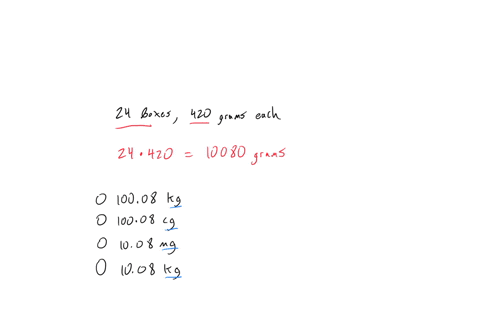 24 Boxes, 420 grams each
24 • 420 = 10080 grams
O 100.08 kg
O 100.08 cg
O 10.08 mg
O 10.08 kg